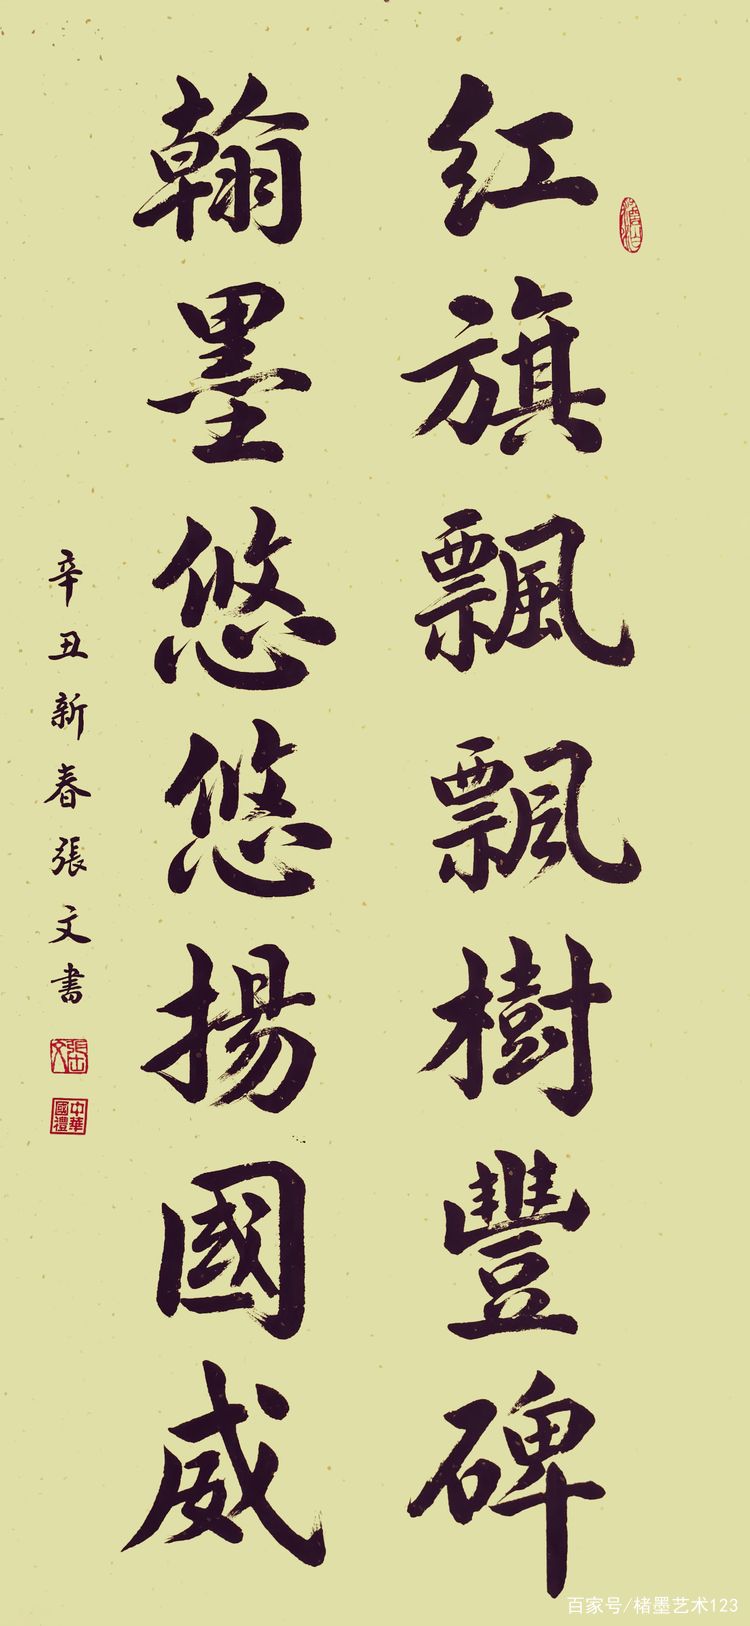 红旗飄飄樹豐碑
翰墨悠悠揚國威
辛丑新春張文書
中華國禮
百家号/楮墨艺术123